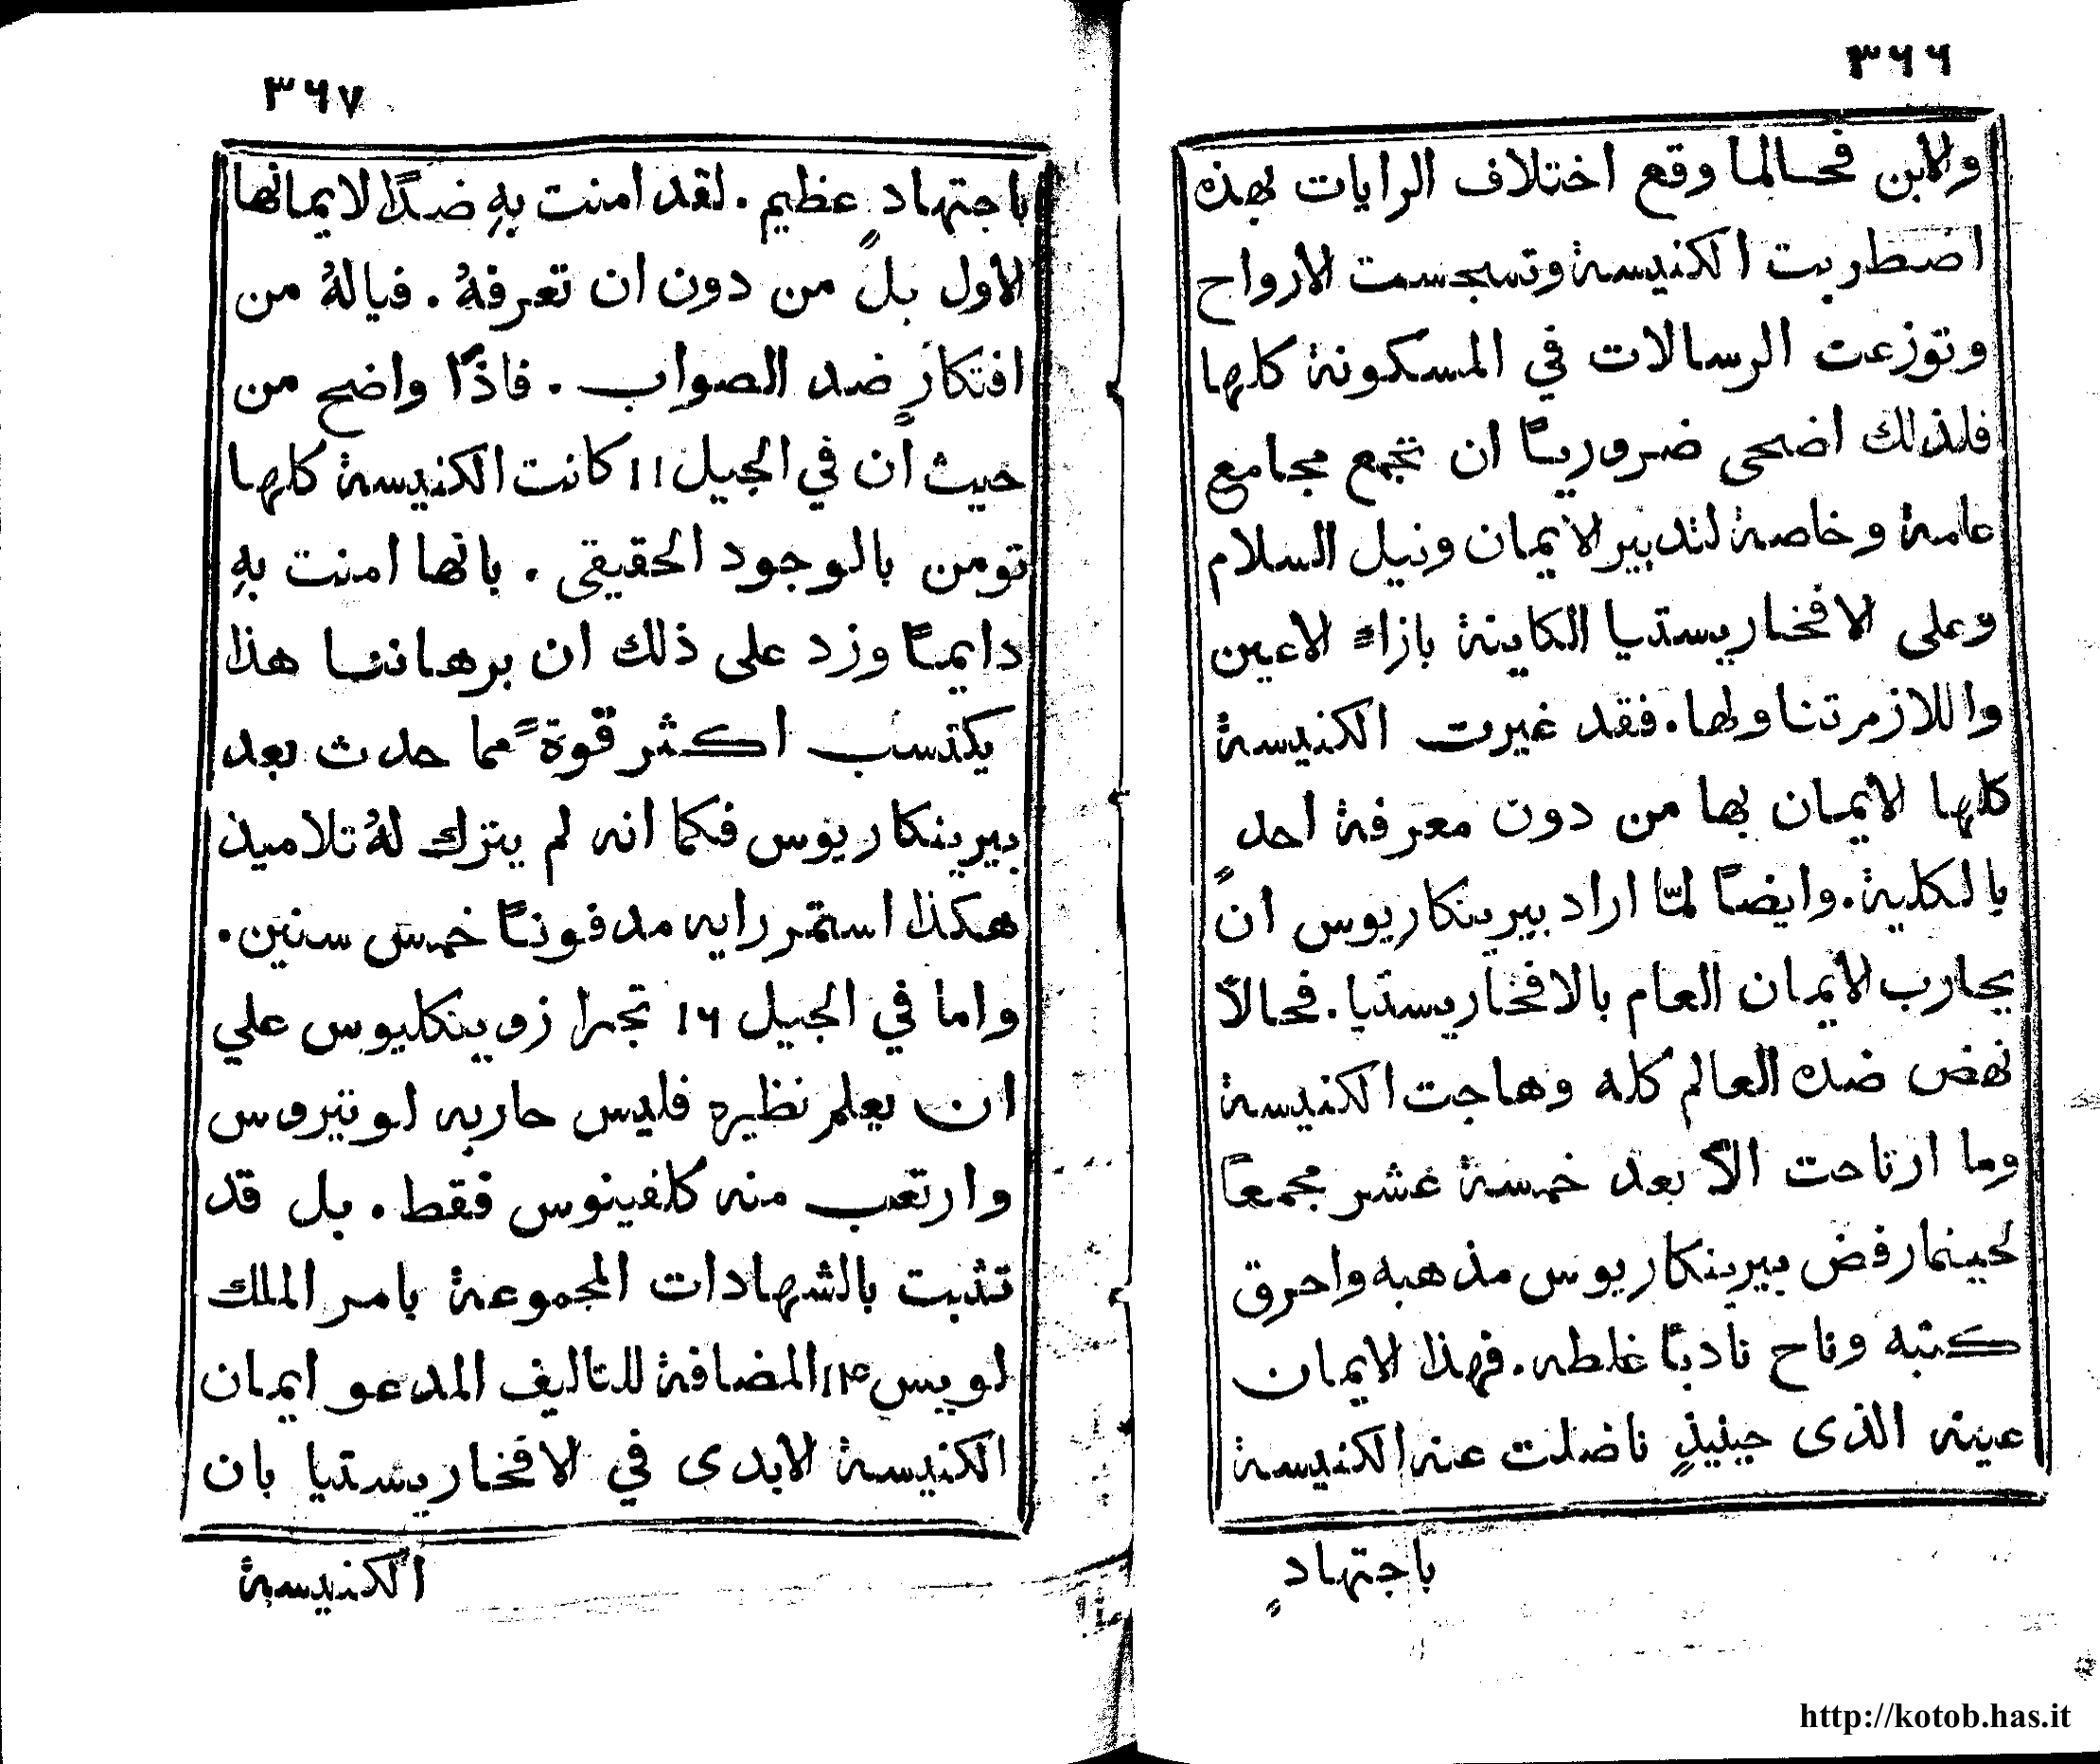 ٣٦٦
والابن فحالما وقع اختلاف الرايات بهذه
اضطربت الكنيسة وتسجست الارواح
وتوزعت الرسالات في المسكونة كلها
فلذلك اضحى ضروريًا ان تجمع مجامع
عامة وخاصة لتدبير الايمان ونيل السلام
وعلى الافخاريستيا الكاينة بازاءِ الاعين
واللازم تناولها. فقد غيرت الكنيسة
كلها الايمان بها من دون معرفة احدٍ
بالكلية. وايضًا لمّا اراد بيرينكاريوس ان
يحارب الايمان العام بالافخاريستيا. فحالاً
نهض ضده العالم كله وهاجت الكنيسة
وما ارتاحت الاّ بعد خمسة عشر مجمعًا
لحينما رفض بيرينكاريوس مذهبه واحرق
كتبه وناح نادبًا غلطه. فهذا الايمان
عينه الذى حينيذٍ ناضلت عنه الكنيسة
باجتهادٍ
٣٦٧
باجتهادٍ عظيم. لقد امنت بهِ ضدًا لايمانها
الاول بل من دون ان تعرفهُ. فيا لهُ من
افتكارٍ ضد الصواب. فاذًا واضح من
حيث ان في الجيل ١١ كانت الكنيسة كلها
تومن بالوجود الحقيقى. بانها امنت بهِ
دايمًا وزد على ذلك ان برهاننا هذا
يكتسب اكثر قوةً مما حدث بعد
بيرينكاريوس فكما انه لم يترك لهُ تلاميذ
هكذا استمر رايه مدفونًا خمس سنين.
واما في الجيل ١٦ تجرا زوينكليوس علي
ان يعلم نظيره فليس حاربه لوتيروس
وارتعب منه كلفينوس فقط. بل قد
تثبت بالشهادات المجموعة بامر الملك
لويس ١٤ المضافة للتاليف المدعو ايمان
الكنيسة الابدى في الافخاريستيا بان
الكنيسة
http://kotob.has.it